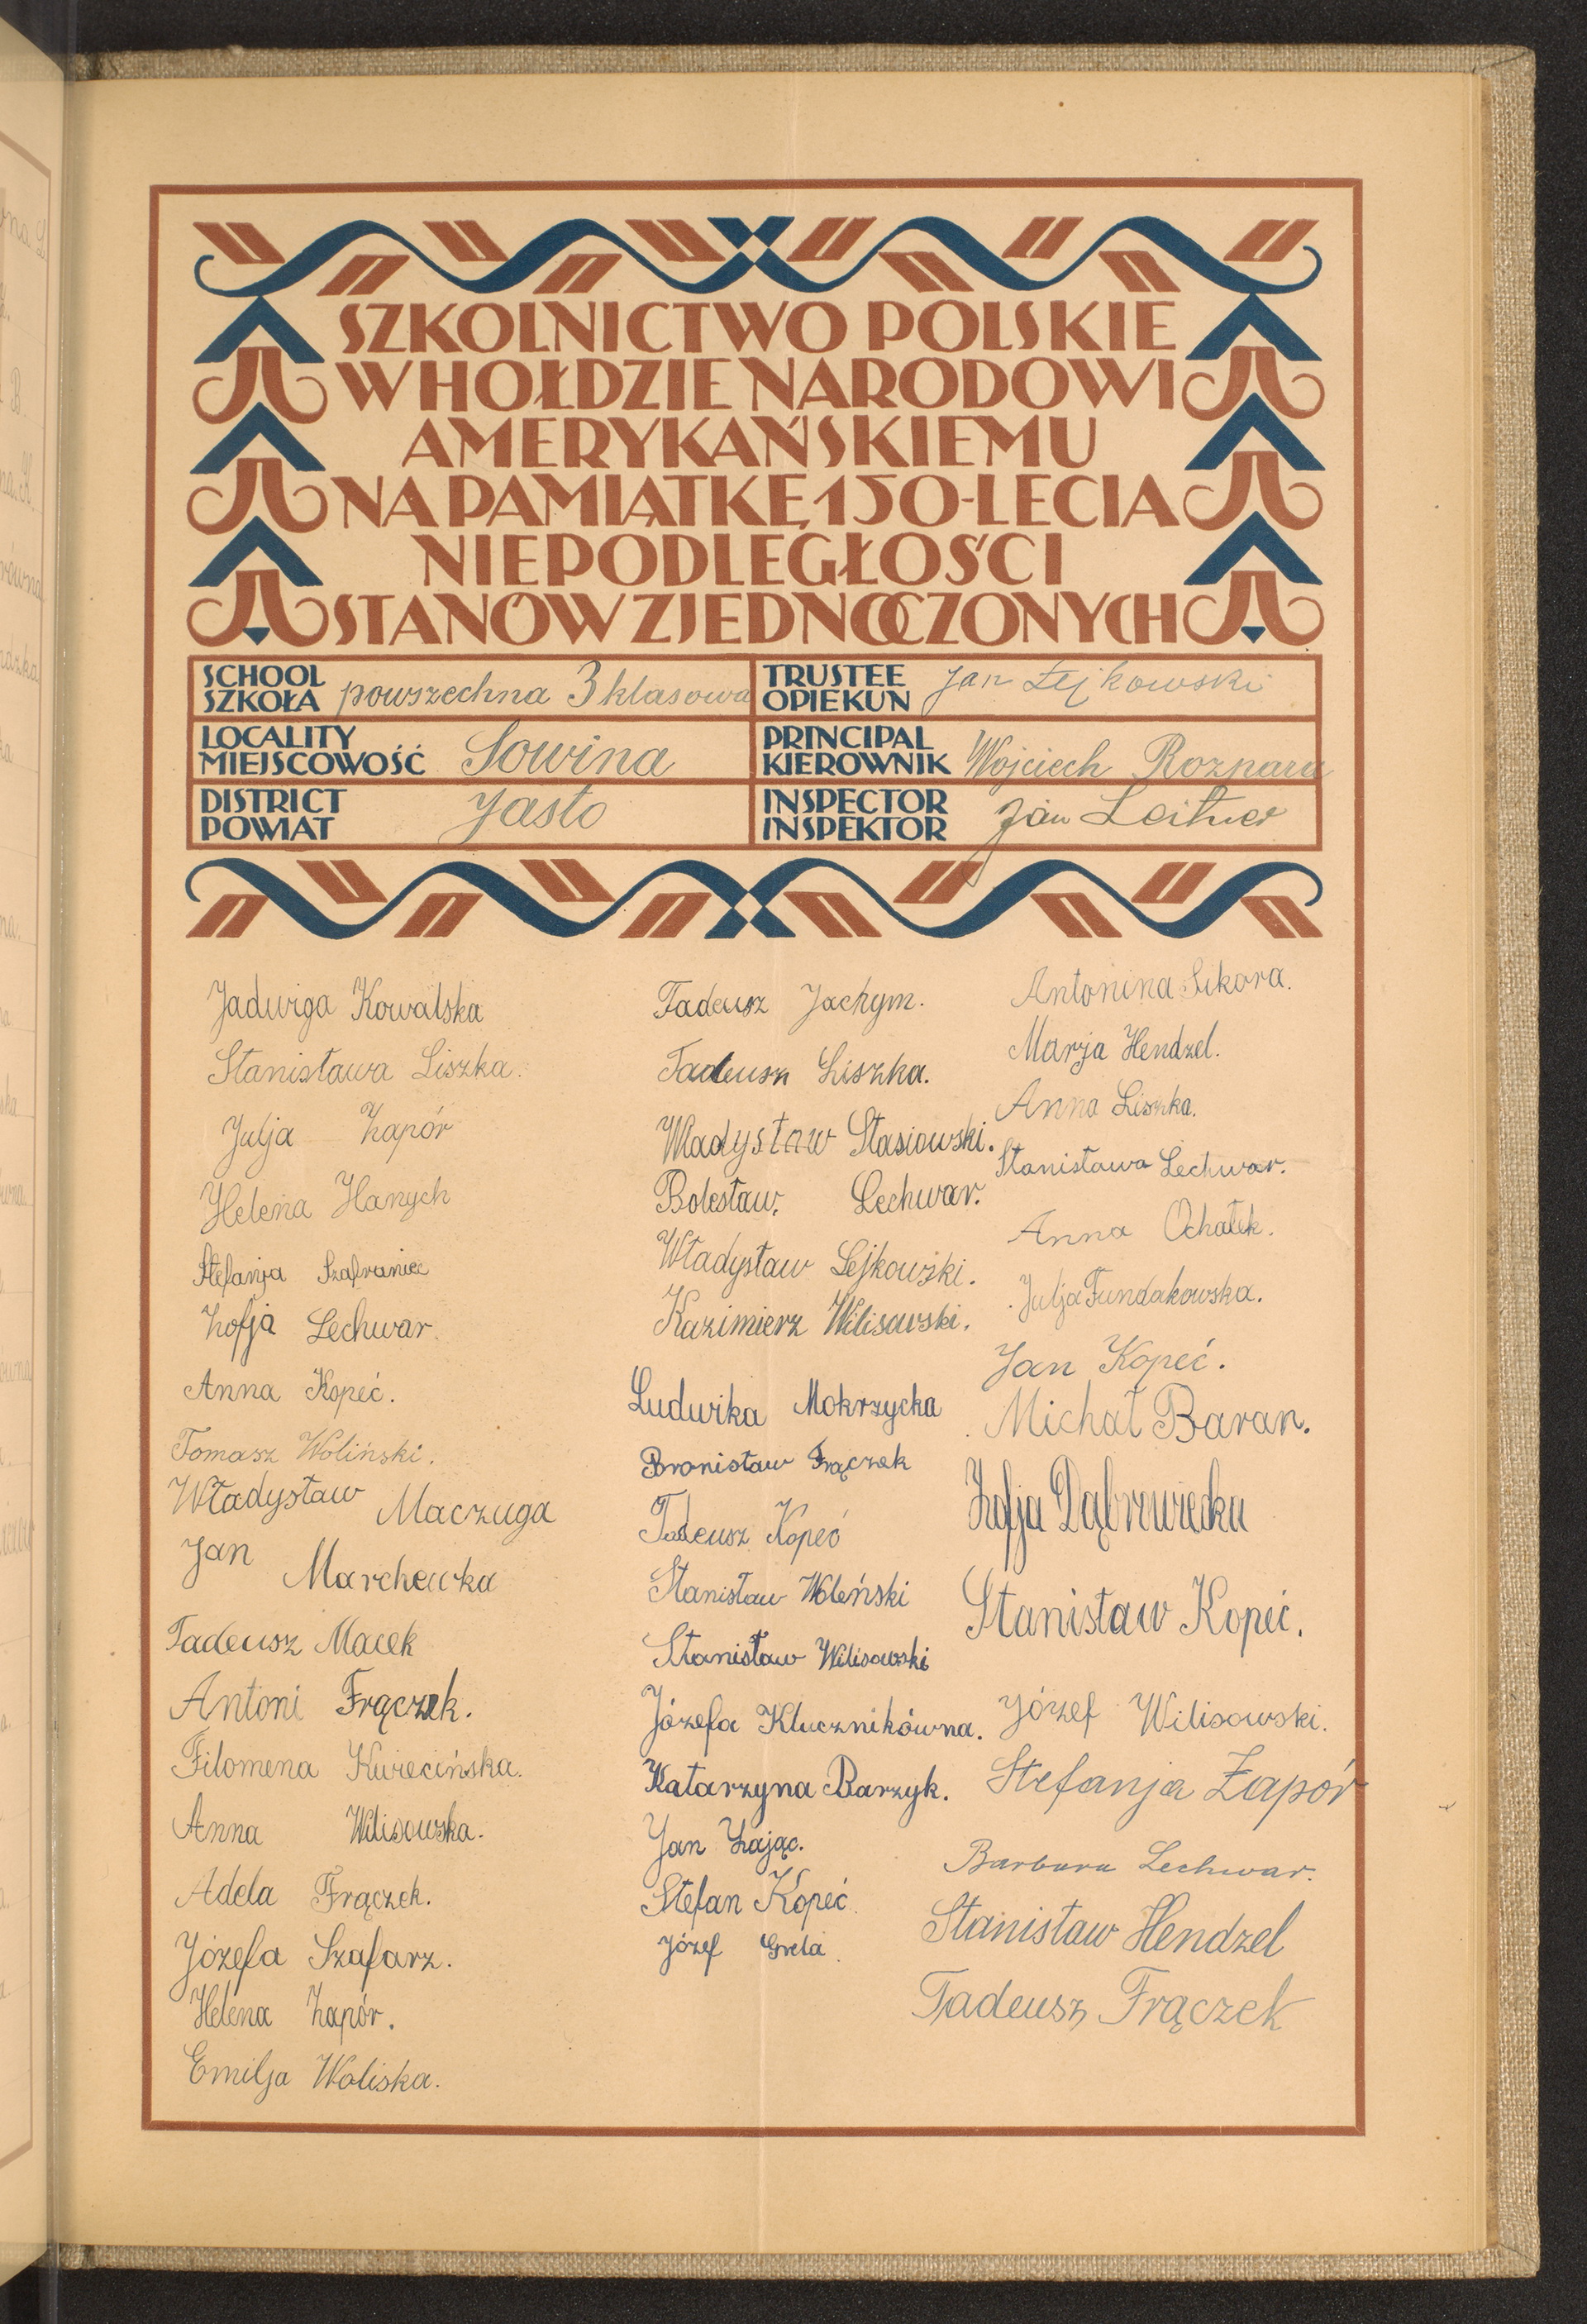 SZKOLNICTWO POLSKIE
W HOŁDZIE NARODOWI
AMERYKAŃSKIEMU
NA PAMIĄTKĘ 150-LECIA
NIEPODLEGŁOŚCI
STANÓW ZJEDNOCZONYCH
SCHOOL
SZKOŁA powszechna 3 klasowa
TRUSTEE
OPIEKUN Jan Łejkowski
LOCALITY
MIEJSCOWOŚĆ Sowina
PRINCIPAL
KIEROWNIK Wojciech Rozpara
DISTRICT
POWIAT Jasło
INSPECTOR
INSPEKTOR Jan Leitner
Jadwiga Kowalska
Stanisława Liszka.
Julja Zapór
Helena Hanych
Stefanja Szafraniec
Zofja Lechwar.
Anna Kopeć.
Tomasz Woliński.
Władysław Maczuga
Jan Marchewka
Tadeusz Macek
Antoni Frączek.
Filomena Kwiecińska.
Anna Wilisowska.
Adela Frączek.
Józefa Szafarz.
Helena Zapór.
Emilja Woliska.
Tadeusz Jachym.
Tadeusz Liszka.
Władysław Stasiowski.
Bolesław. Lechwar.
Władysław Lejkowski.
Kazimierz Wilisowski.
Ludwika Mokrzycka
Bronisław Frączek
Tadeusz Kopeć
Stanisław Woleński
Stanisław Wilisowski
Józefa Kluczników­na.
Katarzyna Barzyk.
Jan Zając.
Stefan Kopeć.
Józef Grela.
Antonina Sikora.
Marja Hendzel.
Anna Liszka.
Stanisława Lechwar.
Anna Ochałek.
Julja Fundakowska.
Jan Kopeć.
Michał Baran.
Zofja Dąbrowiecka
Stanisław Kopeć.
Józef Wilisowski.
Stefanja Zapór
Barbara Lechwar.
Stanisław Hendzel
Tadeusz Frączek